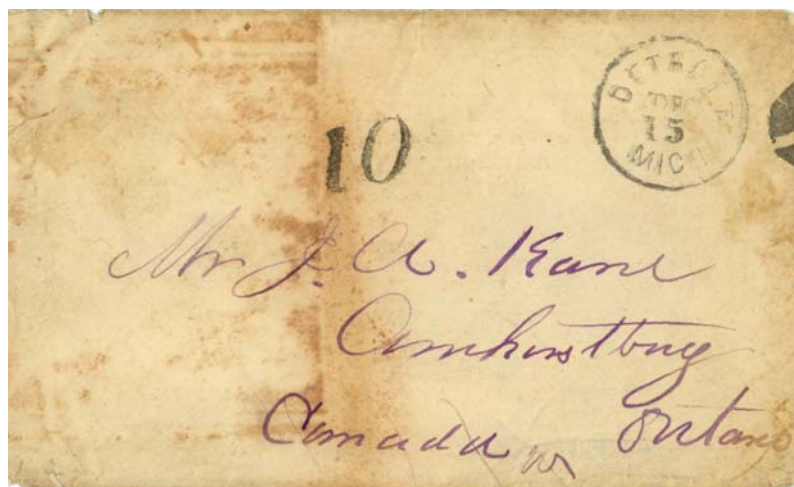 DETROIT
DE
15
MICH.
10
Mr J. A. Kane
Amherstburg
Canada W Ontario